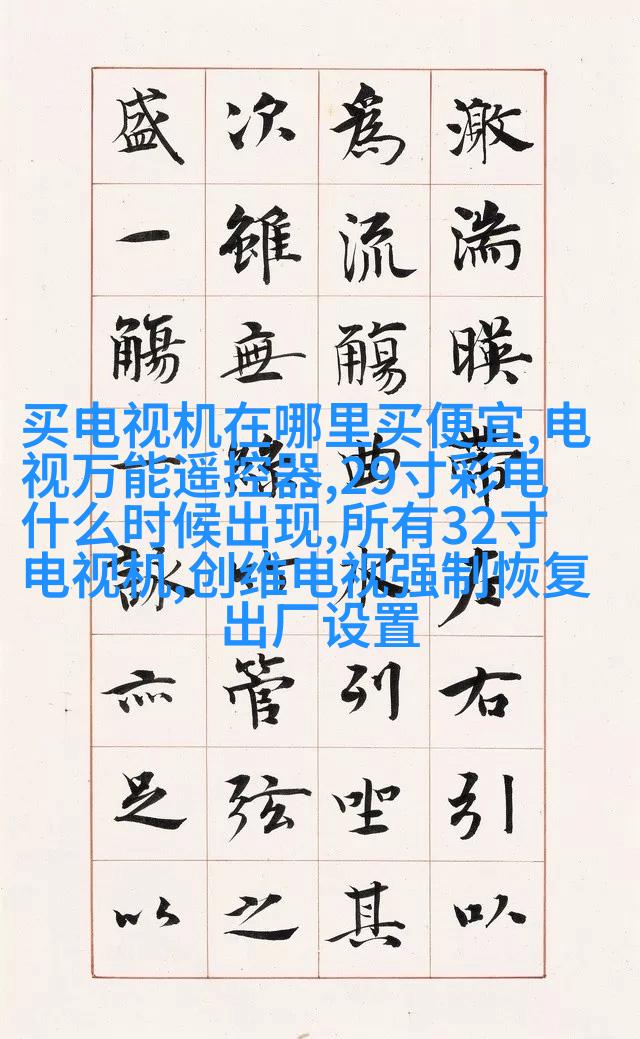 激湍暎帶左右引以
為流觴曲水列坐其
次雖無絲竹管弦之
盛一觴一詠亦足以
买电视机在哪里买便宜,电
视万能遥控器,29寸彩电
什么时候出现,所有32寸
电视机,创维电视强制恢复
出厂设置